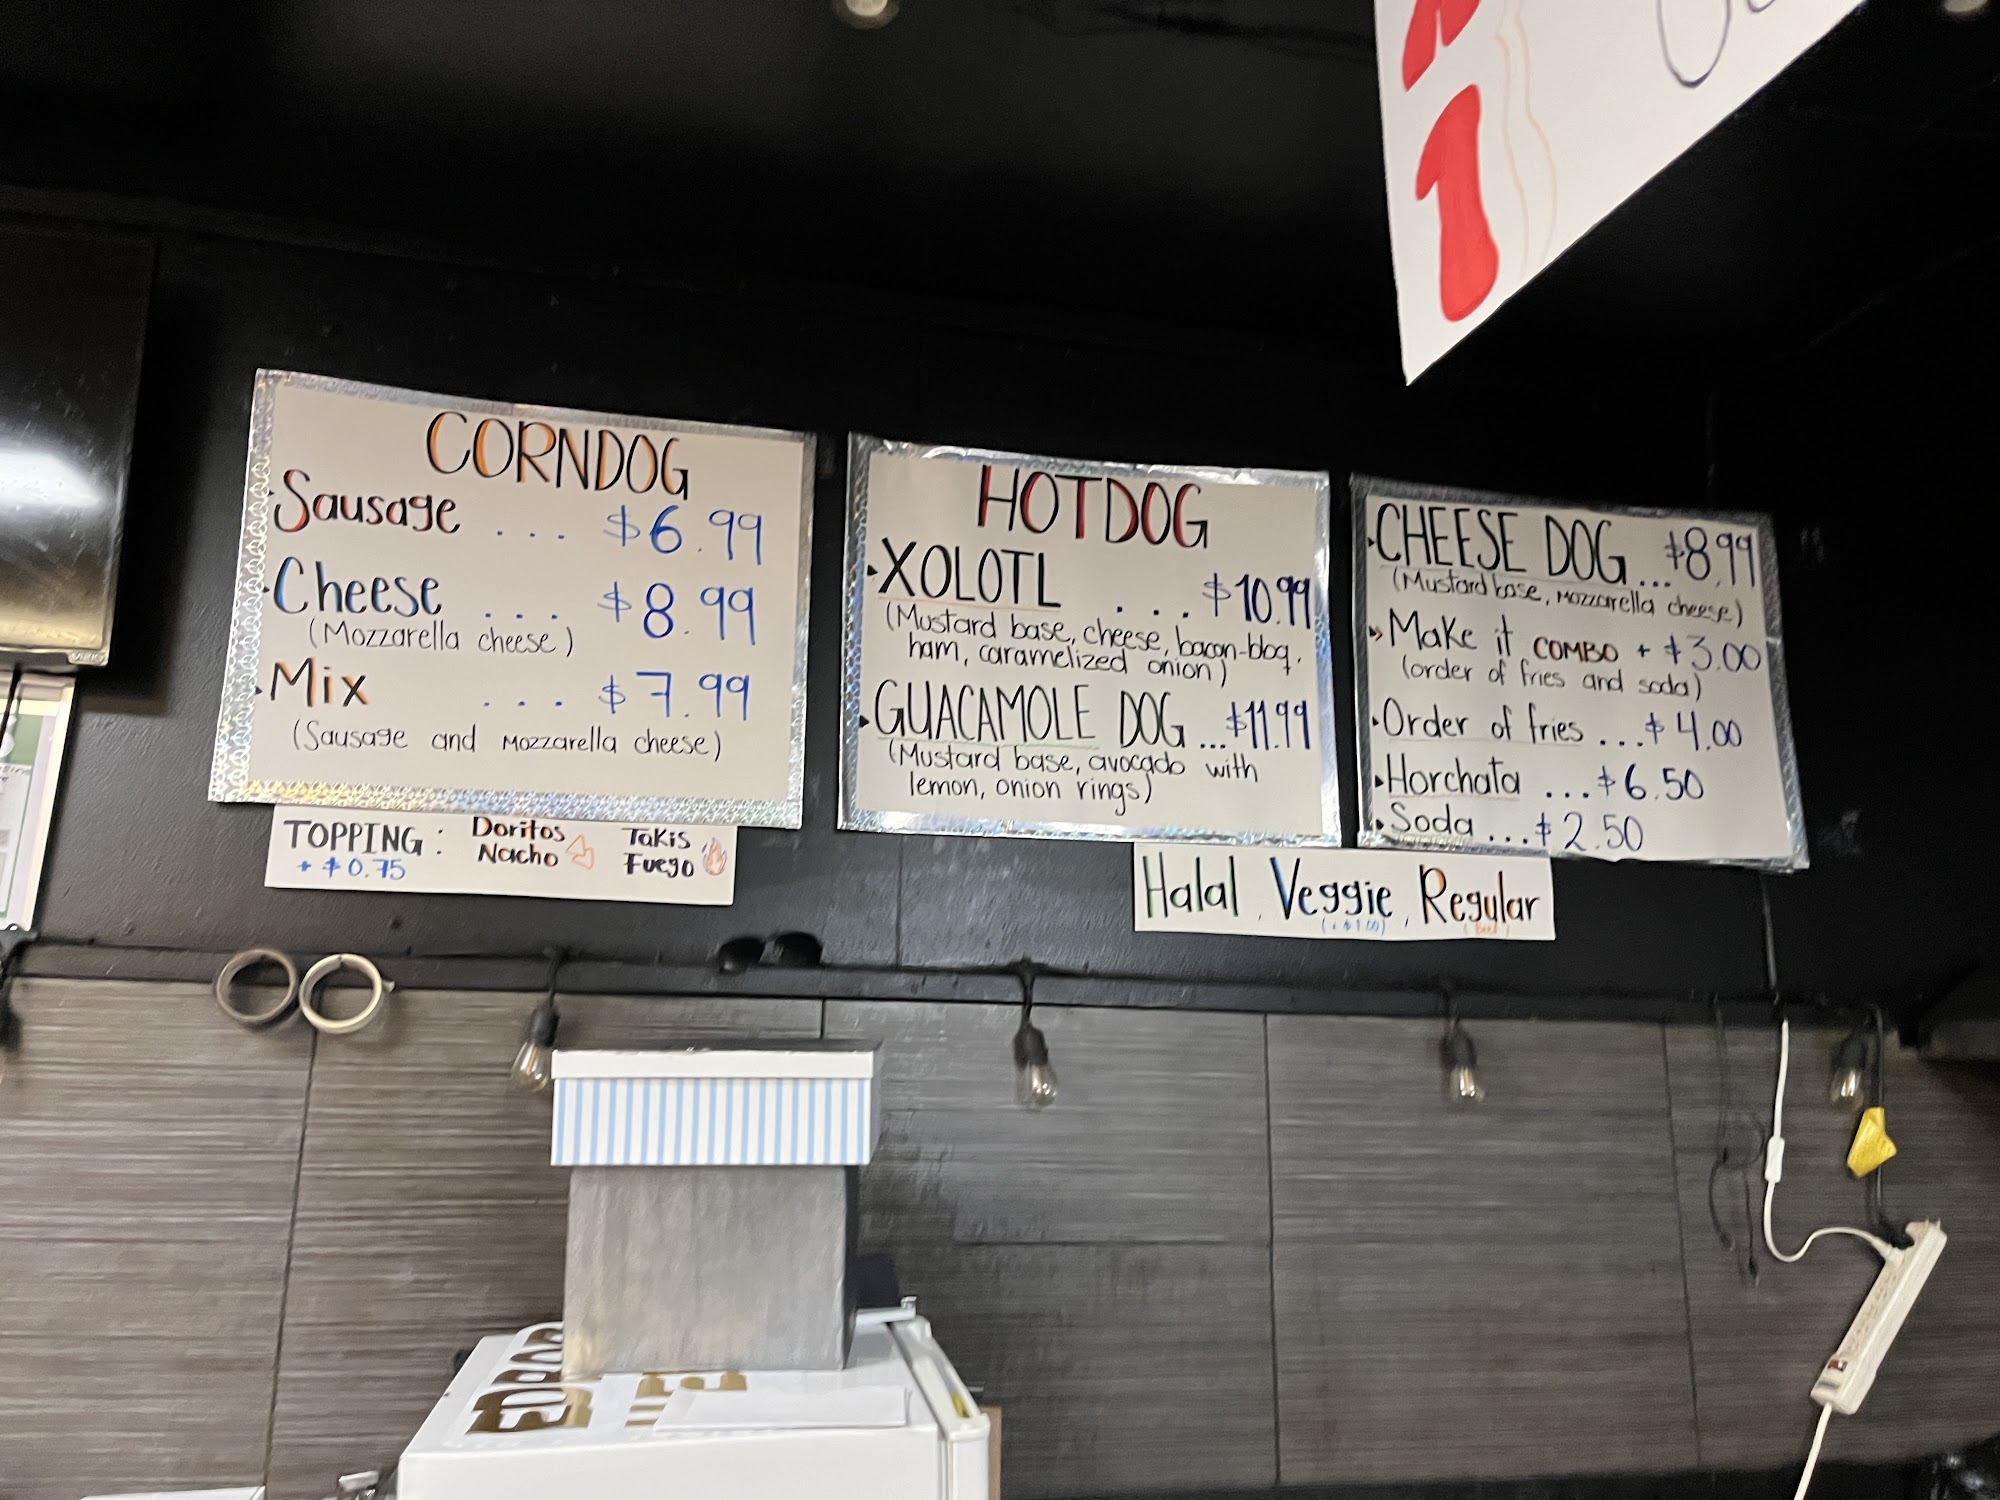 CORNDOG
Sausage ... $6.99
Cheese .... $8.99
(Mozzarella cheese)
Mix ... $7.99
(Sausage and mozzarella cheese)
TOPPING:
+ $0.75
Doritos
Nacho
Takis
Fuego
HOTDOG
XOLOTL ... $10.99
(Mustard base, cheese, bacon-bbq,
ham, caramelized onion)
GUACAMOLE DOG ... $11.99
(Mustard base, avocado with
lemon, onion rings)
CHEESE DOG ... $8.99
(Mustard base, mozzarella cheese)
Make it COMBO + $3.00
(order of fries and soda)
Order of fries ... $4.00
Horchata ... $6.50
Soda ... $2.50
Halal, Veggie, Regular
(+$1.00) (beef)